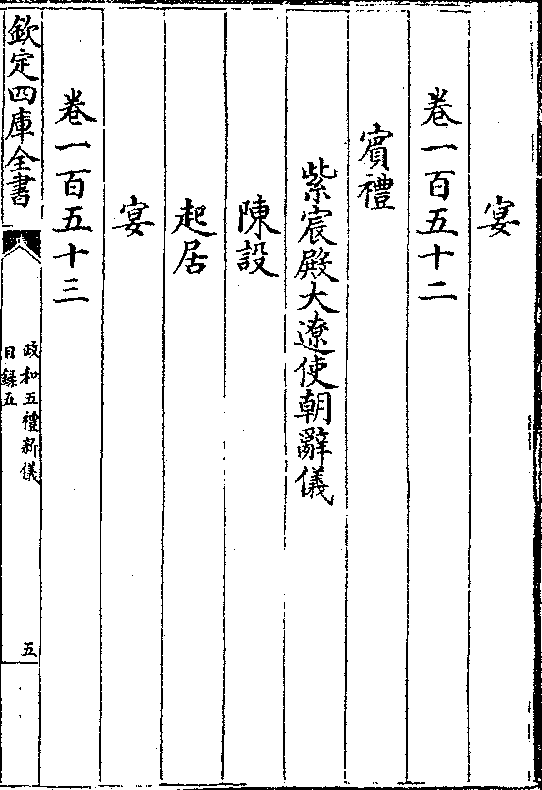 宴
卷一百五十二
賓禮
紫宸殿大遼使朝辭儀
陳設
起居
宴
卷一百五十三
欽定四庫全書
政和五禮新儀
目録五
五